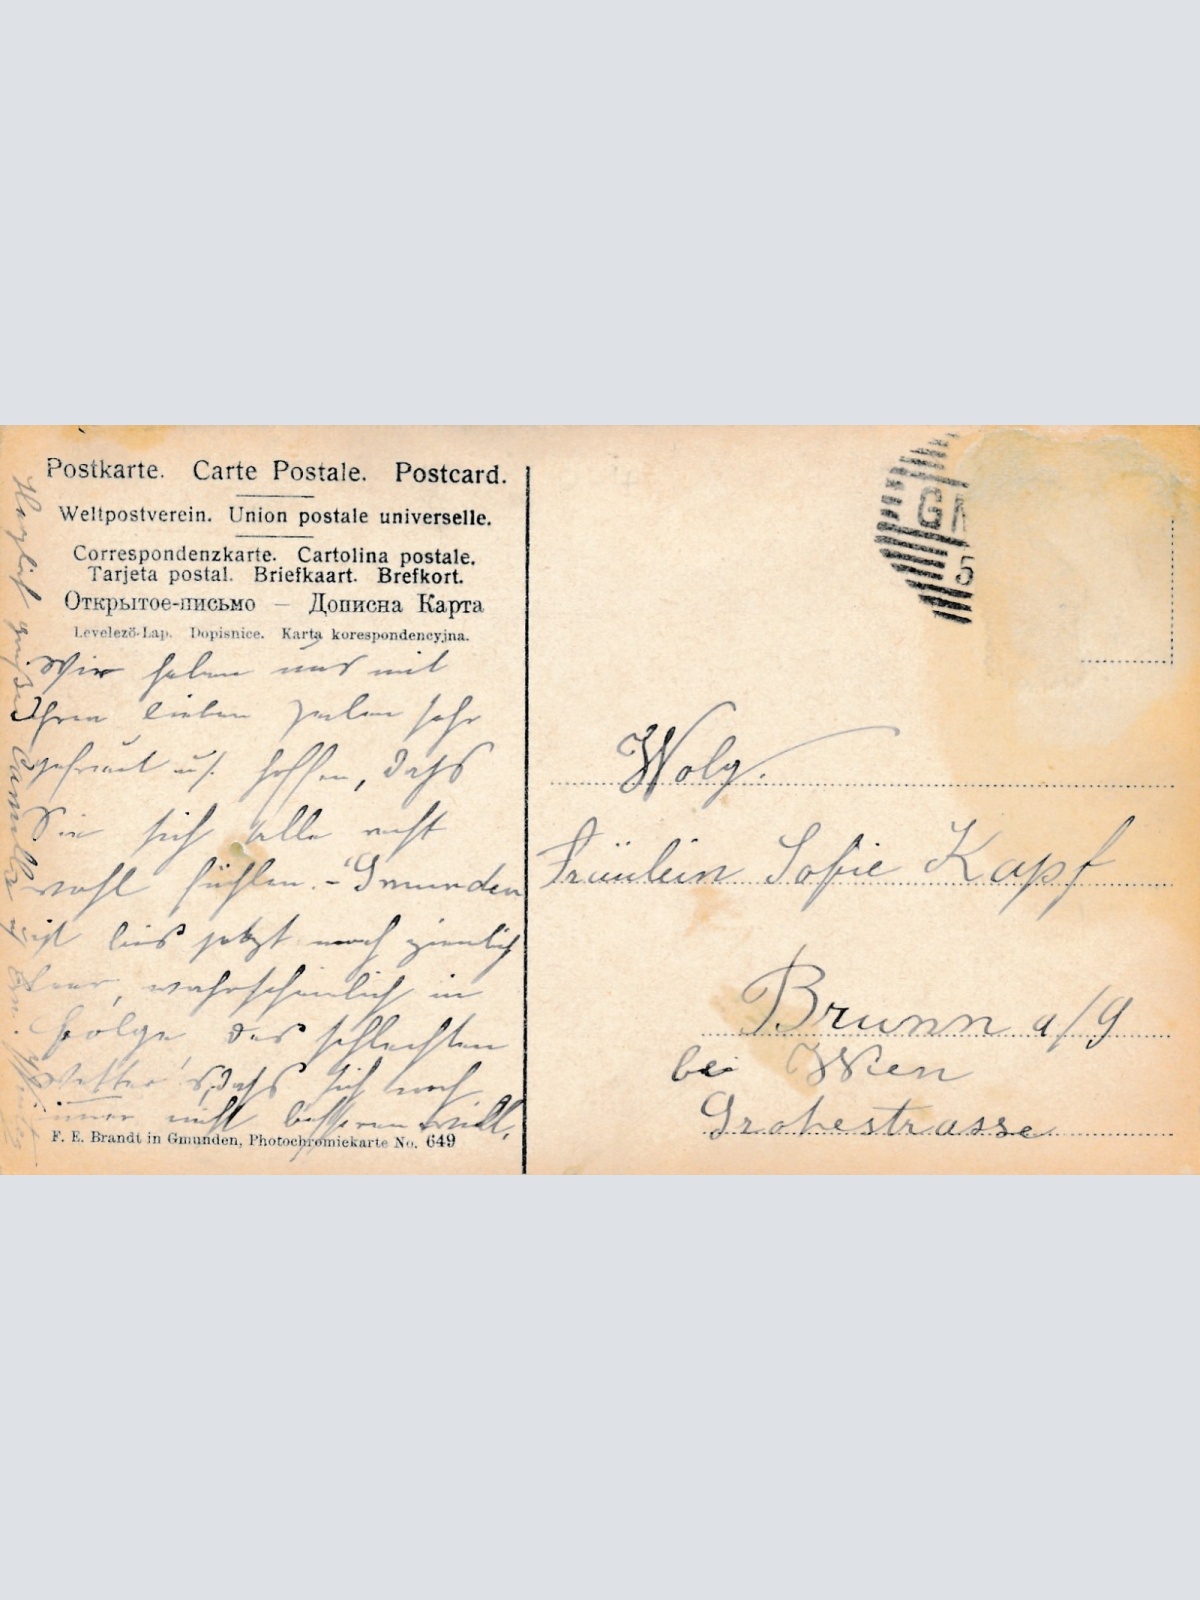 Postkarte. Carte Postale. Postcard.
Weltpostverein. Union postale universelle.
Correspondenzkarte. Cartolina postale.
Tarjeta postal. Briefkaart. Brefkort.
Открытое-письмо — Дописна Карта
Levelező-Lap. Dopisnice. Karta korespondencyjna.
Wir haben uns mit
Ihren lieben Zeilen sehr
gefreut u. hoffen, daß
Sie sich alle recht
wohl fühlen. – Gmunden
ist bis jetzt noch ziemlich
leer, wahrscheinlich in
Folge des schlechten
Wetters, daß sich noch
immer nicht bessern will.
F. E. Brandt in Gmunden, Photochromiekarte No. 649
Herzlich grüßen Camilla u.
GM
5
Wolg.
Fräulein Sofie Kapf
Brunn a/G
bei Wien
Grohestrasse